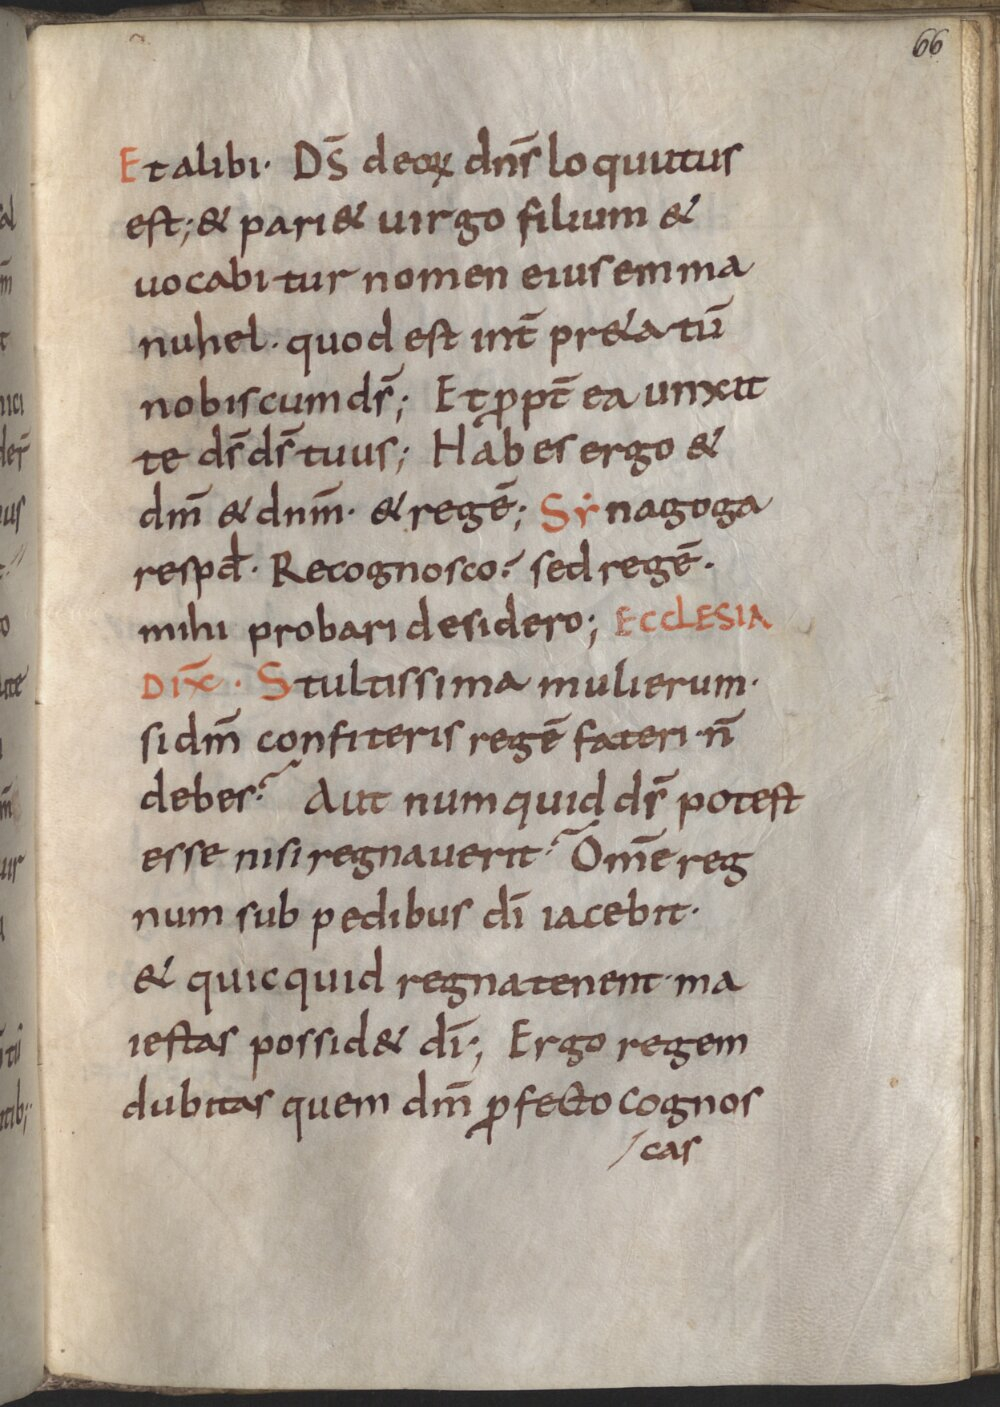 66
Et alibi· DS̄ deoꝝ dn̄s loquutus
est; & pari& uirgo filium &
uocabitur nomen eius emma
nuhel· quod est int̄ pr&atū
nobiscum ds̄; Et ꝓpt̄ ea unxit
te ds̄ ds̄ tuus; Habes ergo &
dm̄ & dnm̄· & regē; Sẏnagoga
respđ· Recognosco? sed regē·
mihi probari desidero; ECCLESIA
DIX̄· Stultissima mulierum·
si dm̄ confiteris regē fateri· n̄
debes? Aut numquid ds̄ potest
esse nisi regnauerit? Om̄e reg
num sub pedibus dī iacebit·
& quicquid regna tenent· ma
iestas possid& dī; Ergo regem
dubitas quem dm̄ ꝓfecto cognos
/cas